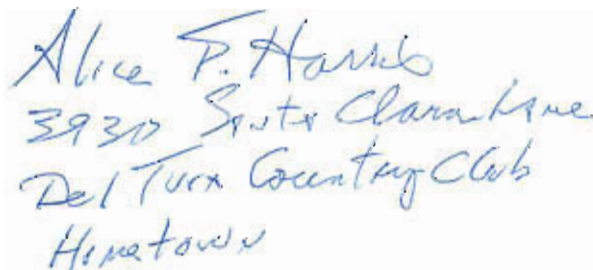 Alice P. Harris
3930 Santa Clara Lane
Del Tura Country Club
Hometown